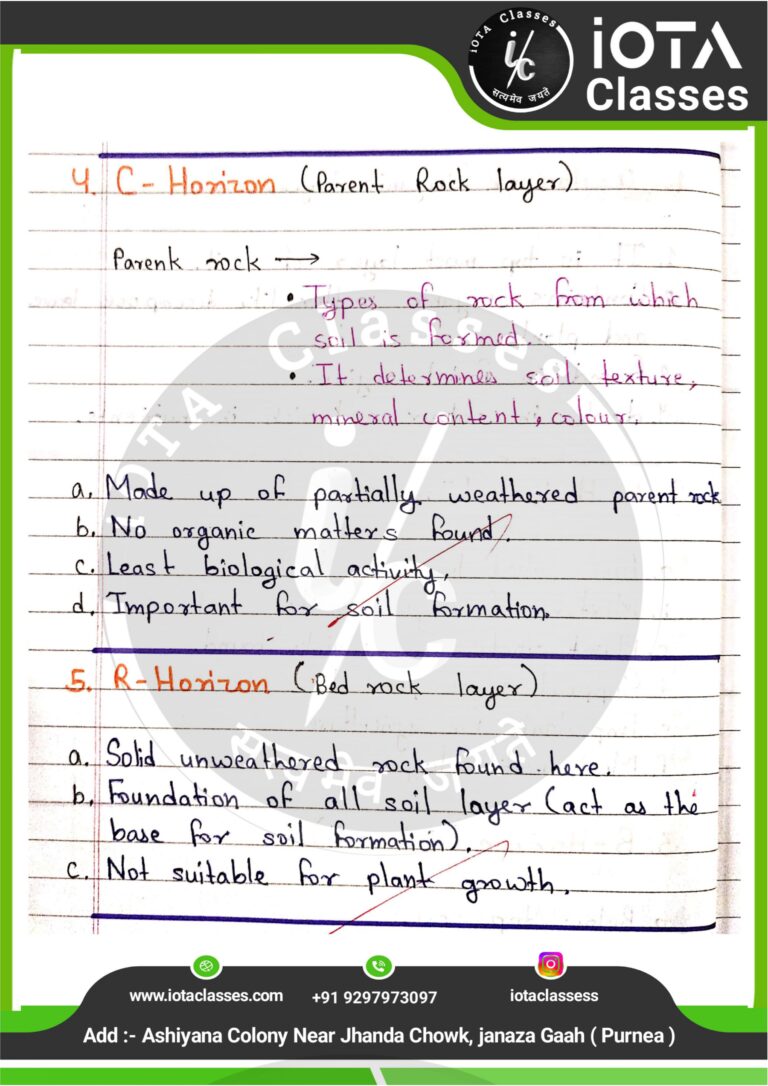 iOTA Classes
i/c
सत्यमेव जयते
iOTA
Classes
4. C-Horizon (Parent Rock layer)
Parenk rock →
• Types of rock from which
soil is formed.
• It determines soil texture,
mineral content, colour.
a. Made up of partially weathered parent rock
b. No organic matters found.
c. Least biological activity.
d. Important for soil formation.
5. R-Horizon (Bed rock layer)
a. Solid unweathered rock found here.
b. Foundation of all soil layer (act as the
base for soil formation).
c. Not suitable for plant growth.
iOTA Classes
i/c
सत्यमेव जयते
www.iotaclasses.com
+91 9297973097
iotaclassess
Add :- Ashiyana Colony Near Jhanda Chowk, janaza Gaah ( Purnea )